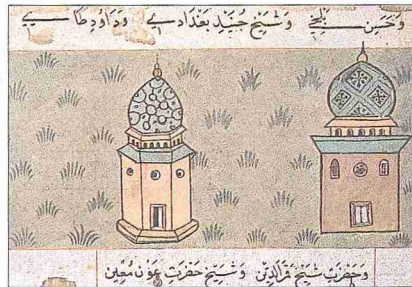 وحسين بلخي وشيخ جنيد بغدادي وداود طايي
وحضرت شيخ قمرالدين وشيخ حضرت عون معين